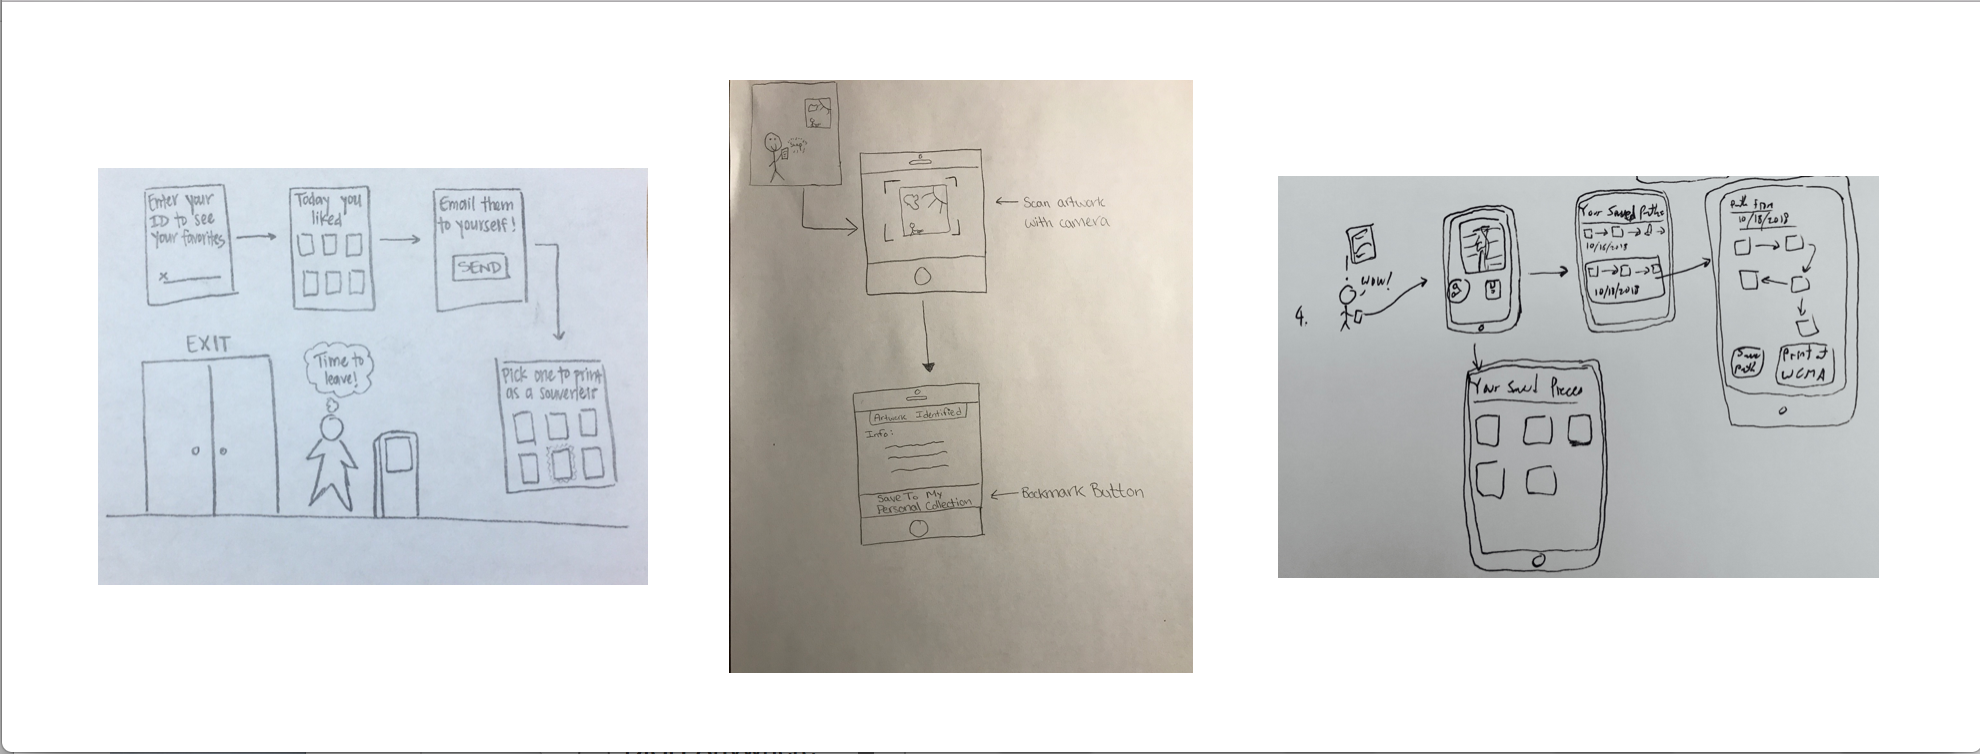 Enter your
ID to see
your favorites
x
Today you
liked
Email them
to yourself!
SEND
EXIT
Time to
leave!
Pick one to print
as a souvenir
Snap!
Scan artwork
with camera
Artwork Identified
Info:
Save To My
Personal Collection
Bookmark Button
4.
WOW!
Your Saved Paths
10/16/2018
10/18/2018
Path From
10/18/2018
Save
Path
Print at
WCMA
Your Saved Pieces